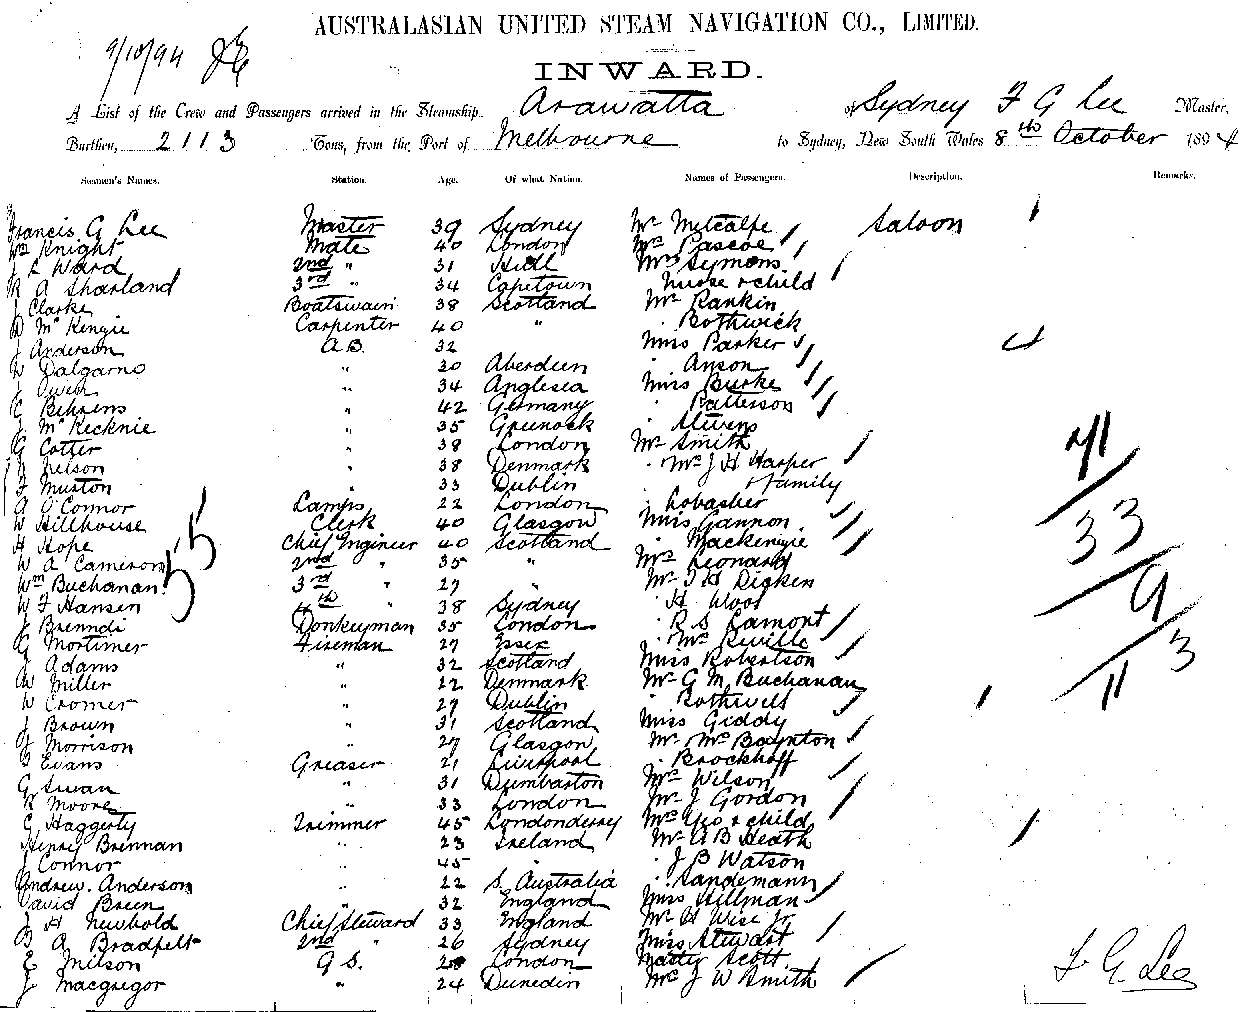 AUSTRALASIAN UNITED STEAM NAVIGATION CO., LIMITED.
9/10/94
INWARD.
A List of the Crew and Passengers arrived in the Steamship Arawatta of Sydney F G Lee Master,
Burthen, 2113 Tons, from the Port of Melbourne to Sydney, New South Wales 8th October 1894
Seamen's Names. Station. Age. Of what Nation. Names of Passengers. Description. Remarks.
Francis G Lee Master 39 Sydney Mr Metcalfe Saloon
Wm Knight Mate 40 London Mrs Pascoe
J L Ward 2nd " 31 Hull Mrs Symons
R A Sharland 3rd " 34 Capetown Nurse & child
J Clarke Boatswain 38 Scotland Mr Rankin
D McKenzie Carpenter 40 " Bothwick
J Anderson A.B. 32 Miss Parker
W Dalgarno " 30 Aberdeen " Anson
J Owen " 34 Anglesea Miss Burke
C Behrens " 42 Germany " Patterson
J McKechnie " 35 Greenock " Stevens
G Cotter " 38 London Mr Smith
N Nelson " 38 Denmark " Mrs J H Harper
F Muston " 33 Dublin & family
A O'Connor Lamps 22 London " Lobascher
W Hillhouse Clerk 40 Glasgow Miss Gannon
H Hope Chief Engineer 40 Scotland " Mackenzie
W A Cameron 2nd " 35 " Mrs Leonard
Wm Buchanan 3rd " 27 " Mr T H Dicken
W F Hansen 4th " 38 Sydney " H Wood
J Brenndi Donkeyman 35 London " R S Lamont
G Mortimer Fireman 27 Essex " Mrs Reville
J Adams " 32 Scotland Miss Robertson
W Miller " 22 Denmark Mr G M Buchanan
W Cromer " 27 Dublin " Rothwell
J Brown " 31 Scotland Miss Giddy
J Morrison " 27 Glasgow Mr Mc Boynton
Evans Greaser 21 Liverpool " Brockhoff
G Swan " 31 Dumbarton Mrs Wilson
R Moore " 33 London Mr J Gordon
C Haggerty Trimmer 45 Londonderry Mrs Yeo & child
Henry Brennan " 23 Ireland Mr A B Heath
J Connor " 45 " " J B Watson
Andrew Anderson " 22 S. Australia " Sandemann
David Breen " 32 England Miss Hillman
J H Newbold Chief Steward 33 England Mr H Wise Jr
B A Bradfelt 2nd " 26 Sydney Miss Stewart
E Nilson G S. 28 London Matty Scott
J Macgregor " 24 Dunedin Mr J W Smith
55
41
33
9
11 3
F G Lee